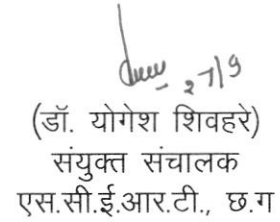 27/9
(डॉ. योगेश शिवहरे)
संयुक्त संचालक
एस.सी.ई.आर.टी., छ.ग